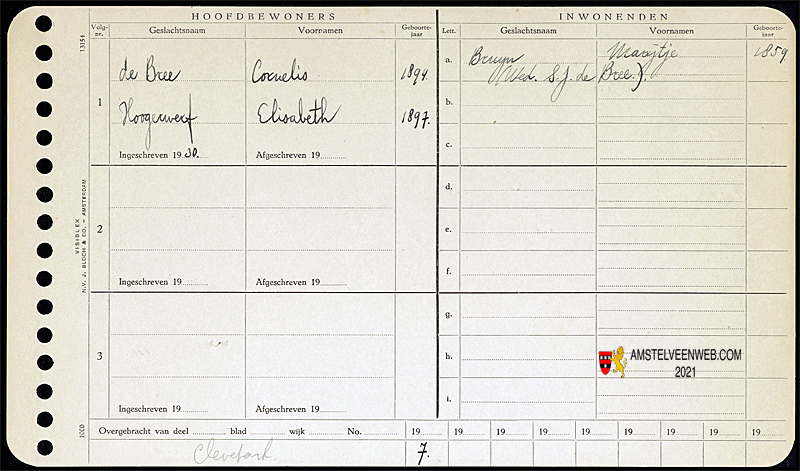 HOOFDBEWONERS
INWONENDEN
Volg-nr.
Geslachtsnaam
Voornamen
Geboorte-jaar
Lett.
Geslachtsnaam
Voornamen
Geboorte-jaar
1315 I
1
de Bree
Cornelis
1894.
Hoogerwerf
Elisabeth
1897.
Ingeschreven 19 30.
Afgeschreven 19
a.
Bruyn
Marijtje
1859.
(Wed. S.J. de Bree.).
b.
c.
d.
2
e.
f.
Ingeschreven 19
Afgeschreven 19
VISIBLEX
N.V. J. BLOCH & CO. – AMSTERDAM
g.
3
h.
AMSTELVEENWEB.COM
2021
i.
Ingeschreven 19
Afgeschreven 19
1000
Overgebracht van deel blad wijk No. 19 19 19 19 19 19 19 19 19
7.